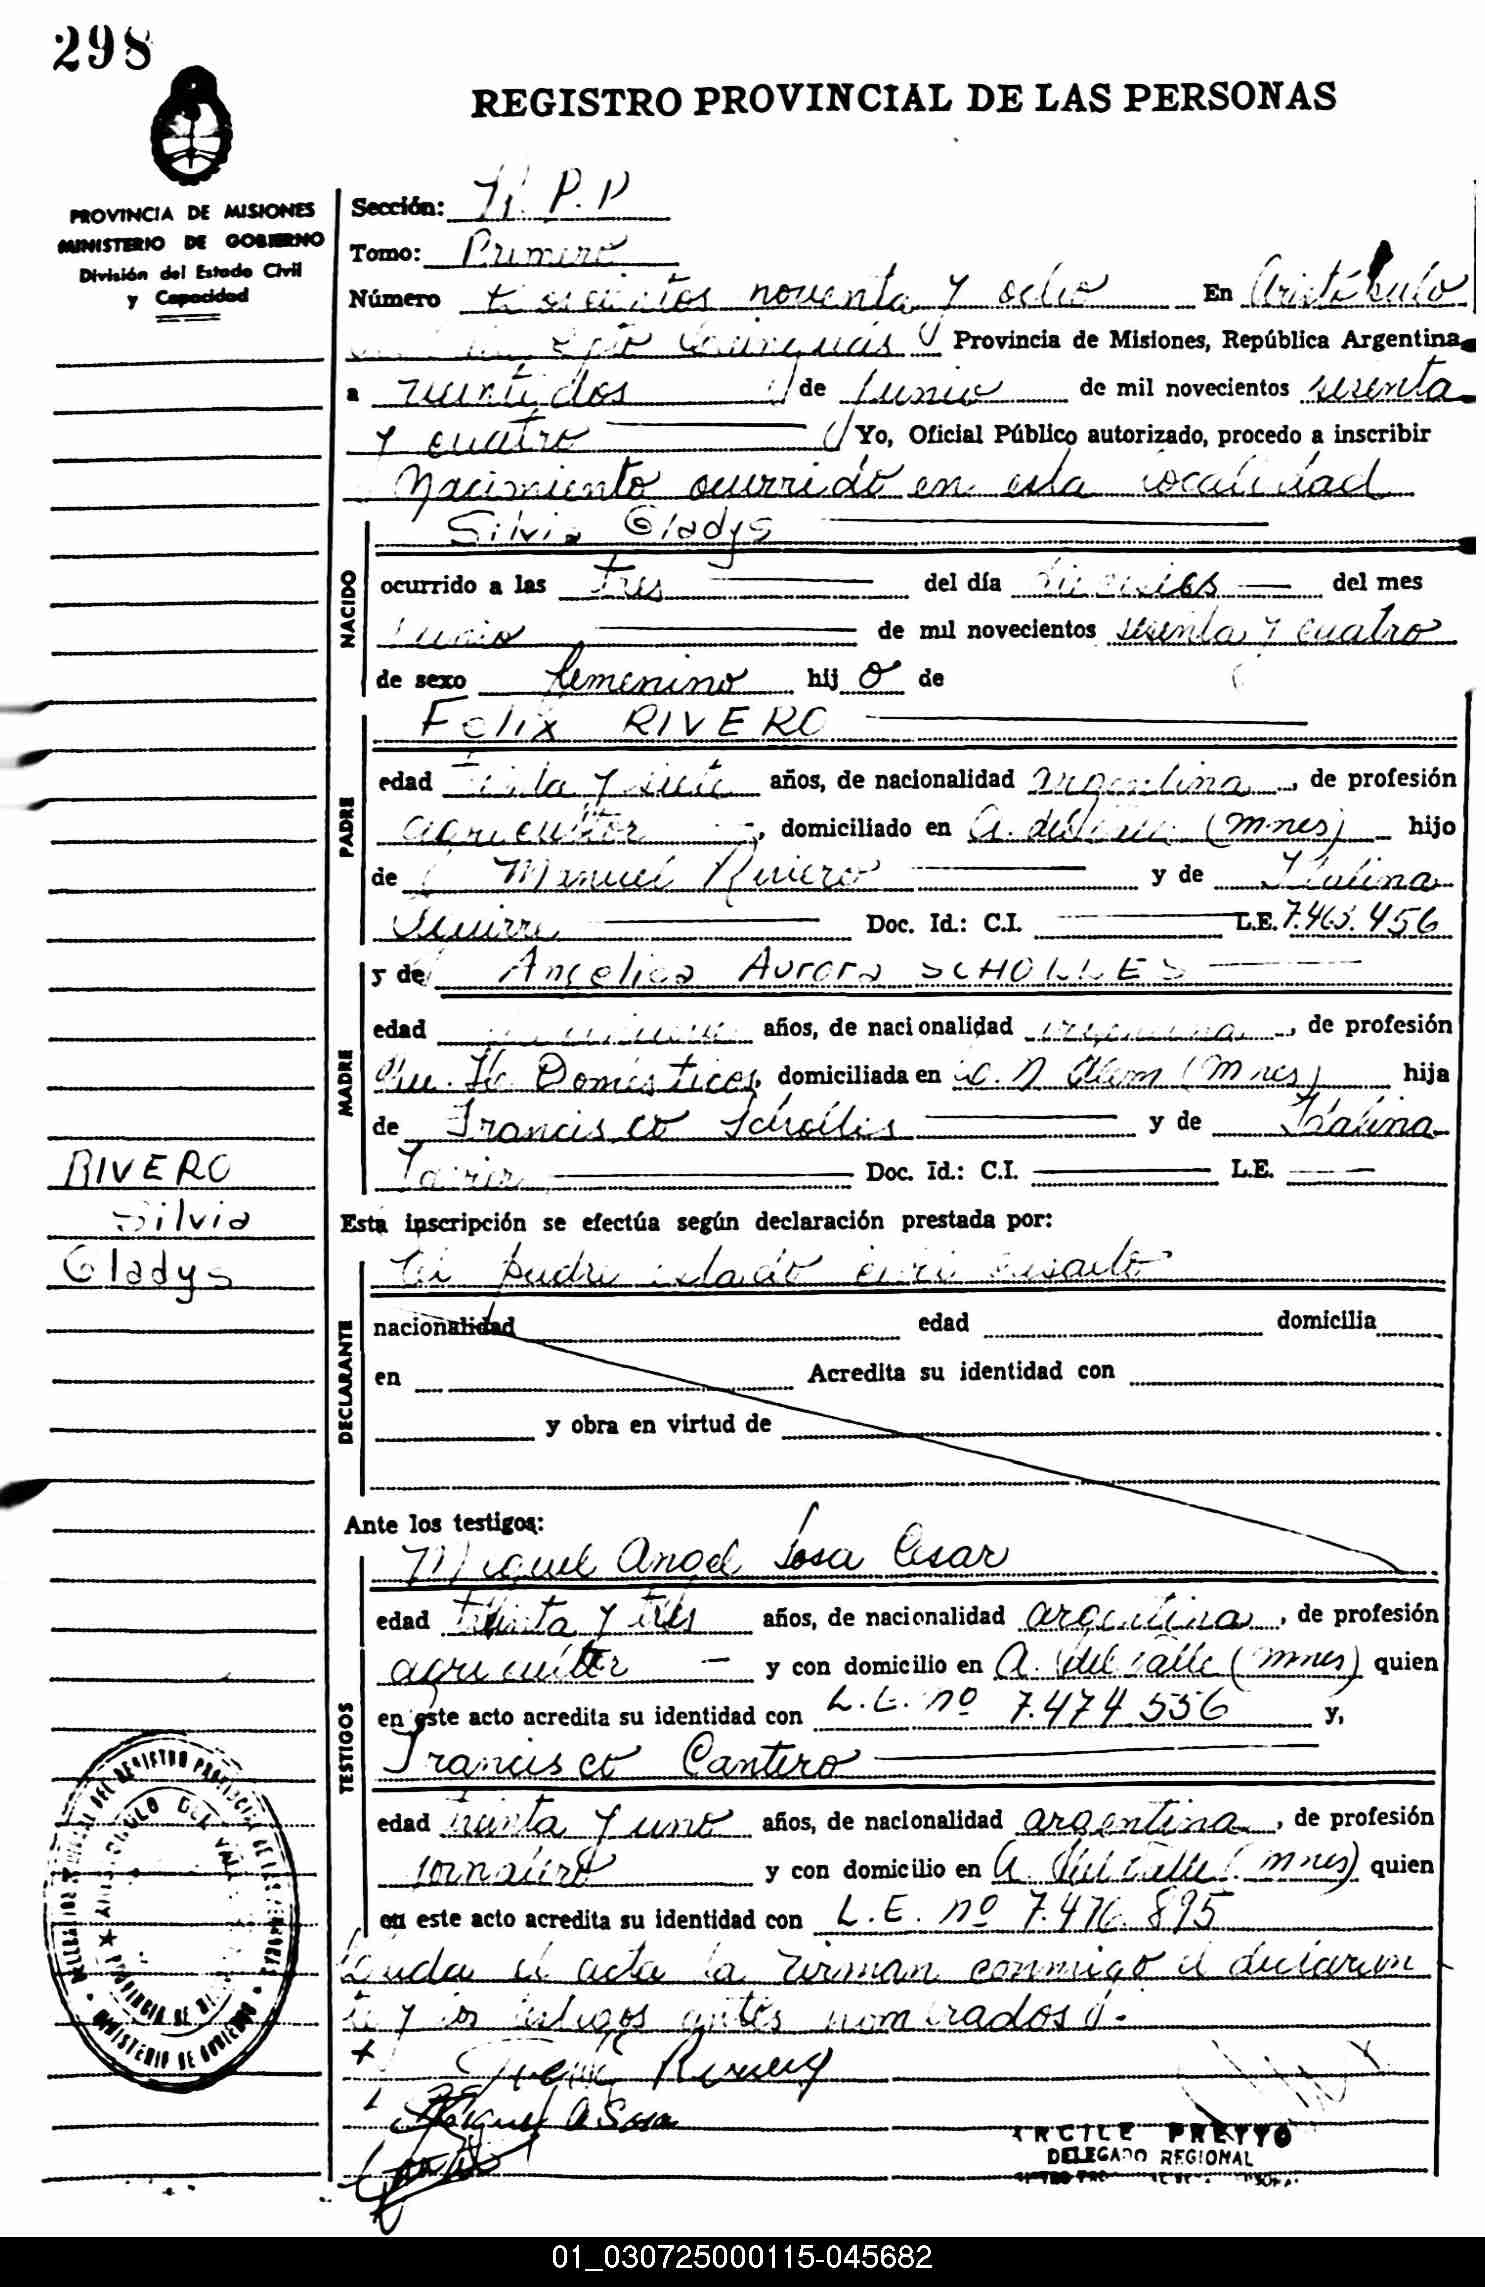 298
REGISTRO PROVINCIAL DE LAS PERSONAS
PROVINCIA DE MISIONES
MINISTERIO DE GOBIERNO
División del Estado Civil
y Capacidad
Sección: P.P
Tomo: Primero
Número noventa y ocho En Aristóbulo
Dpto Cainguás Provincia de Misiones, República Argentina
a veintidos de Junio de mil novecientos sesenta
y cuatro Yo, Oficial Público autorizado, procedo a inscribir
Nacimiento ocurrido en esta localidad
NACIDO
Silvia Gladys
ocurrido a las tres del día del mes
Junio de mil novecientos sesenta y cuatro
de sexo femenino hij o de
PADRE
Felix RIVERO
edad años, de nacionalidad argentina, de profesión
agricultor, domiciliado en A. del Valle (Mnes) hijo
de Manuel Riviero y de Italina
Doc. Id.: C.I. L.E. 7.463.456
MADRE
y de Angelica Aurora SCHOLLES
edad años, de nacionalidad argentina, de profesión
Domesticos, domiciliada en L. N Alem (Mnes) hija
de Francisco Scholles y de
Doc. Id.: C.I. L.E.
RIVERO
Silvia
Gladys
Esta inscripción se efectúa según declaración prestada por:
DECLARANTE
El padre estado civil casado
nacionalidad edad domicilia
en Acredita su identidad con
y obra en virtud de
Ante los testigos:
TESTIGOS
Miguel Angel Sosa Cesar
edad treinta y tres años, de nacionalidad argentina, de profesión
agricultor y con domicilio en A. del Valle (Mnes) quien
en este acto acredita su identidad con L.E. nº 7.474.556 y,
Francisco Cantero
edad treinta y uno años, de nacionalidad argentina, de profesión
jornalero y con domicilio en A. del Valle (Mnes) quien
en este acto acredita su identidad con L.E. nº 7.476.895
Leída el acta la firman conmigo el declaran
te y los testigos antes nombrados.-
Miguel A Sosa
PREYYO
DELEGADO REGIONAL
MINISTERIO DE GOBIERNO
01_030725000115-045682